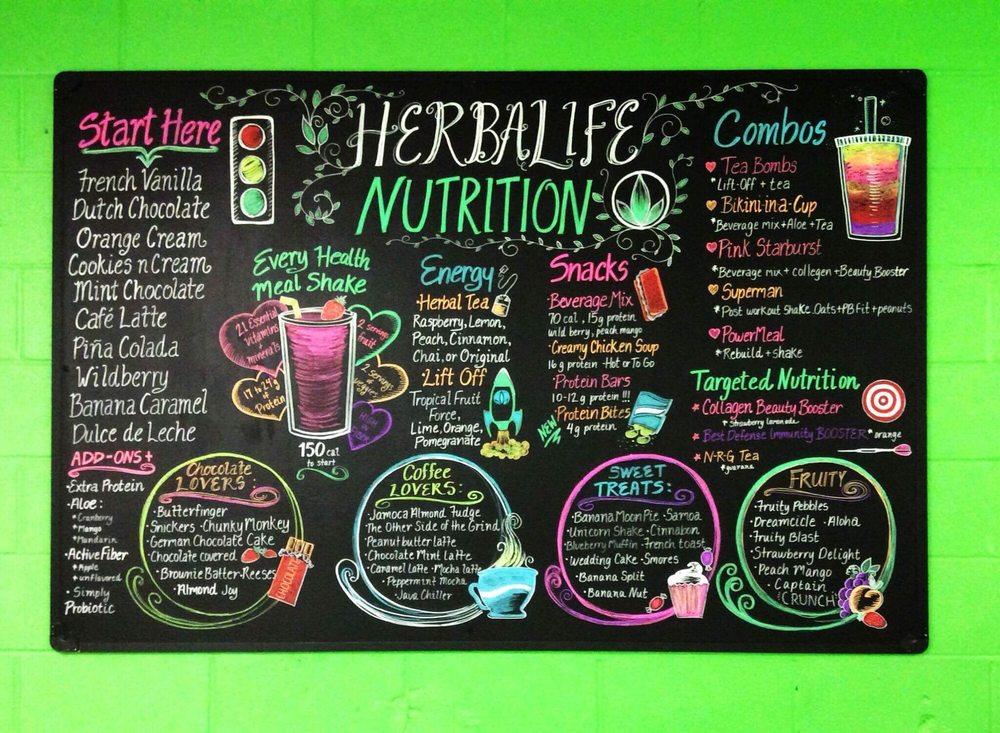 HERBALIFE
NUTRITION
Start Here
French Vanilla
Dutch Chocolate
Orange Cream
Cookies n Cream
Mint Chocolate
Café Latte
Piña Colada
Wildberry
Banana Caramel
Dulce de Leche
ADD-ONS+
·Extra Protein
·Aloe:
*Cranberry
*Mango
*Mandarin
·Active Fiber
*Apple
*unflavored
·Simply
Probiotic
Every Health
Meal Shake
21 Essential
vitamins +
minerals
2 servings
fruit
17 to 24g
Protein
2 servings
of
veggies
150 cal
to start
Energy
·Herbal Tea
Raspberry, Lemon,
Peach, Cinnamon,
Chai, or Original
·Lift Off
Tropical Fruit
Force,
Lime, Orange,
Pomegranate
Snacks
·Beverage Mix
70 cal, 15g protein
wild berry, peach mango
·Creamy Chicken Soup
16 g protein ·Hot or To Go
·Protein Bars
10-12 g protein !!!
·Protein Bites
NEW
4g protein
Combos
Tea Bombs
*Lift-Off + tea
Bikini-in-a-Cup
*Beverage mix+Aloe+Tea
Pink Starburst
*Beverage mix + collegen +Beauty Booster
Superman
*Post workout Shake. Oats+PB Fit+peanuts
PowerMeal
*Rebuild + shake
Targeted Nutrition
Collagen Beauty Booster
*Strawberry lemonade
Best Defense Immunity BOOSTER *orange
N-R-G Tea
*guarana
Chocolate
LOVERS:
·Butterfinger
Snickers ·Chunky Monkey
·German Chocolate Cake
·Chocolate covered
·Brownie Batter ·Reeses
·Almond Joy
CHOCOLATE
Coffee
LOVERS:
·Jamoca Almond Fudge
·The Other Side of the Grind
·Peanut butter latte
·Chocolate Mint Latte
·Caramel Latte ·Mocha latte
·Peppermint Mocha
·Java Chiller
SWEET
TREATS:
·Banana Moon Pie ·Samoa
·Unicorn Shake ·Cinnabon
·Blueberry Muffin ·French toast
·Wedding Cake ·Smores
·Banana Split
·Banana Nut
FRUITY
·Fruity Pebbles
·Dreamcicle ·Aloha
·Fruity Blast
·Strawberry Delight
·Peach Mango
·Captain
CRUNCH